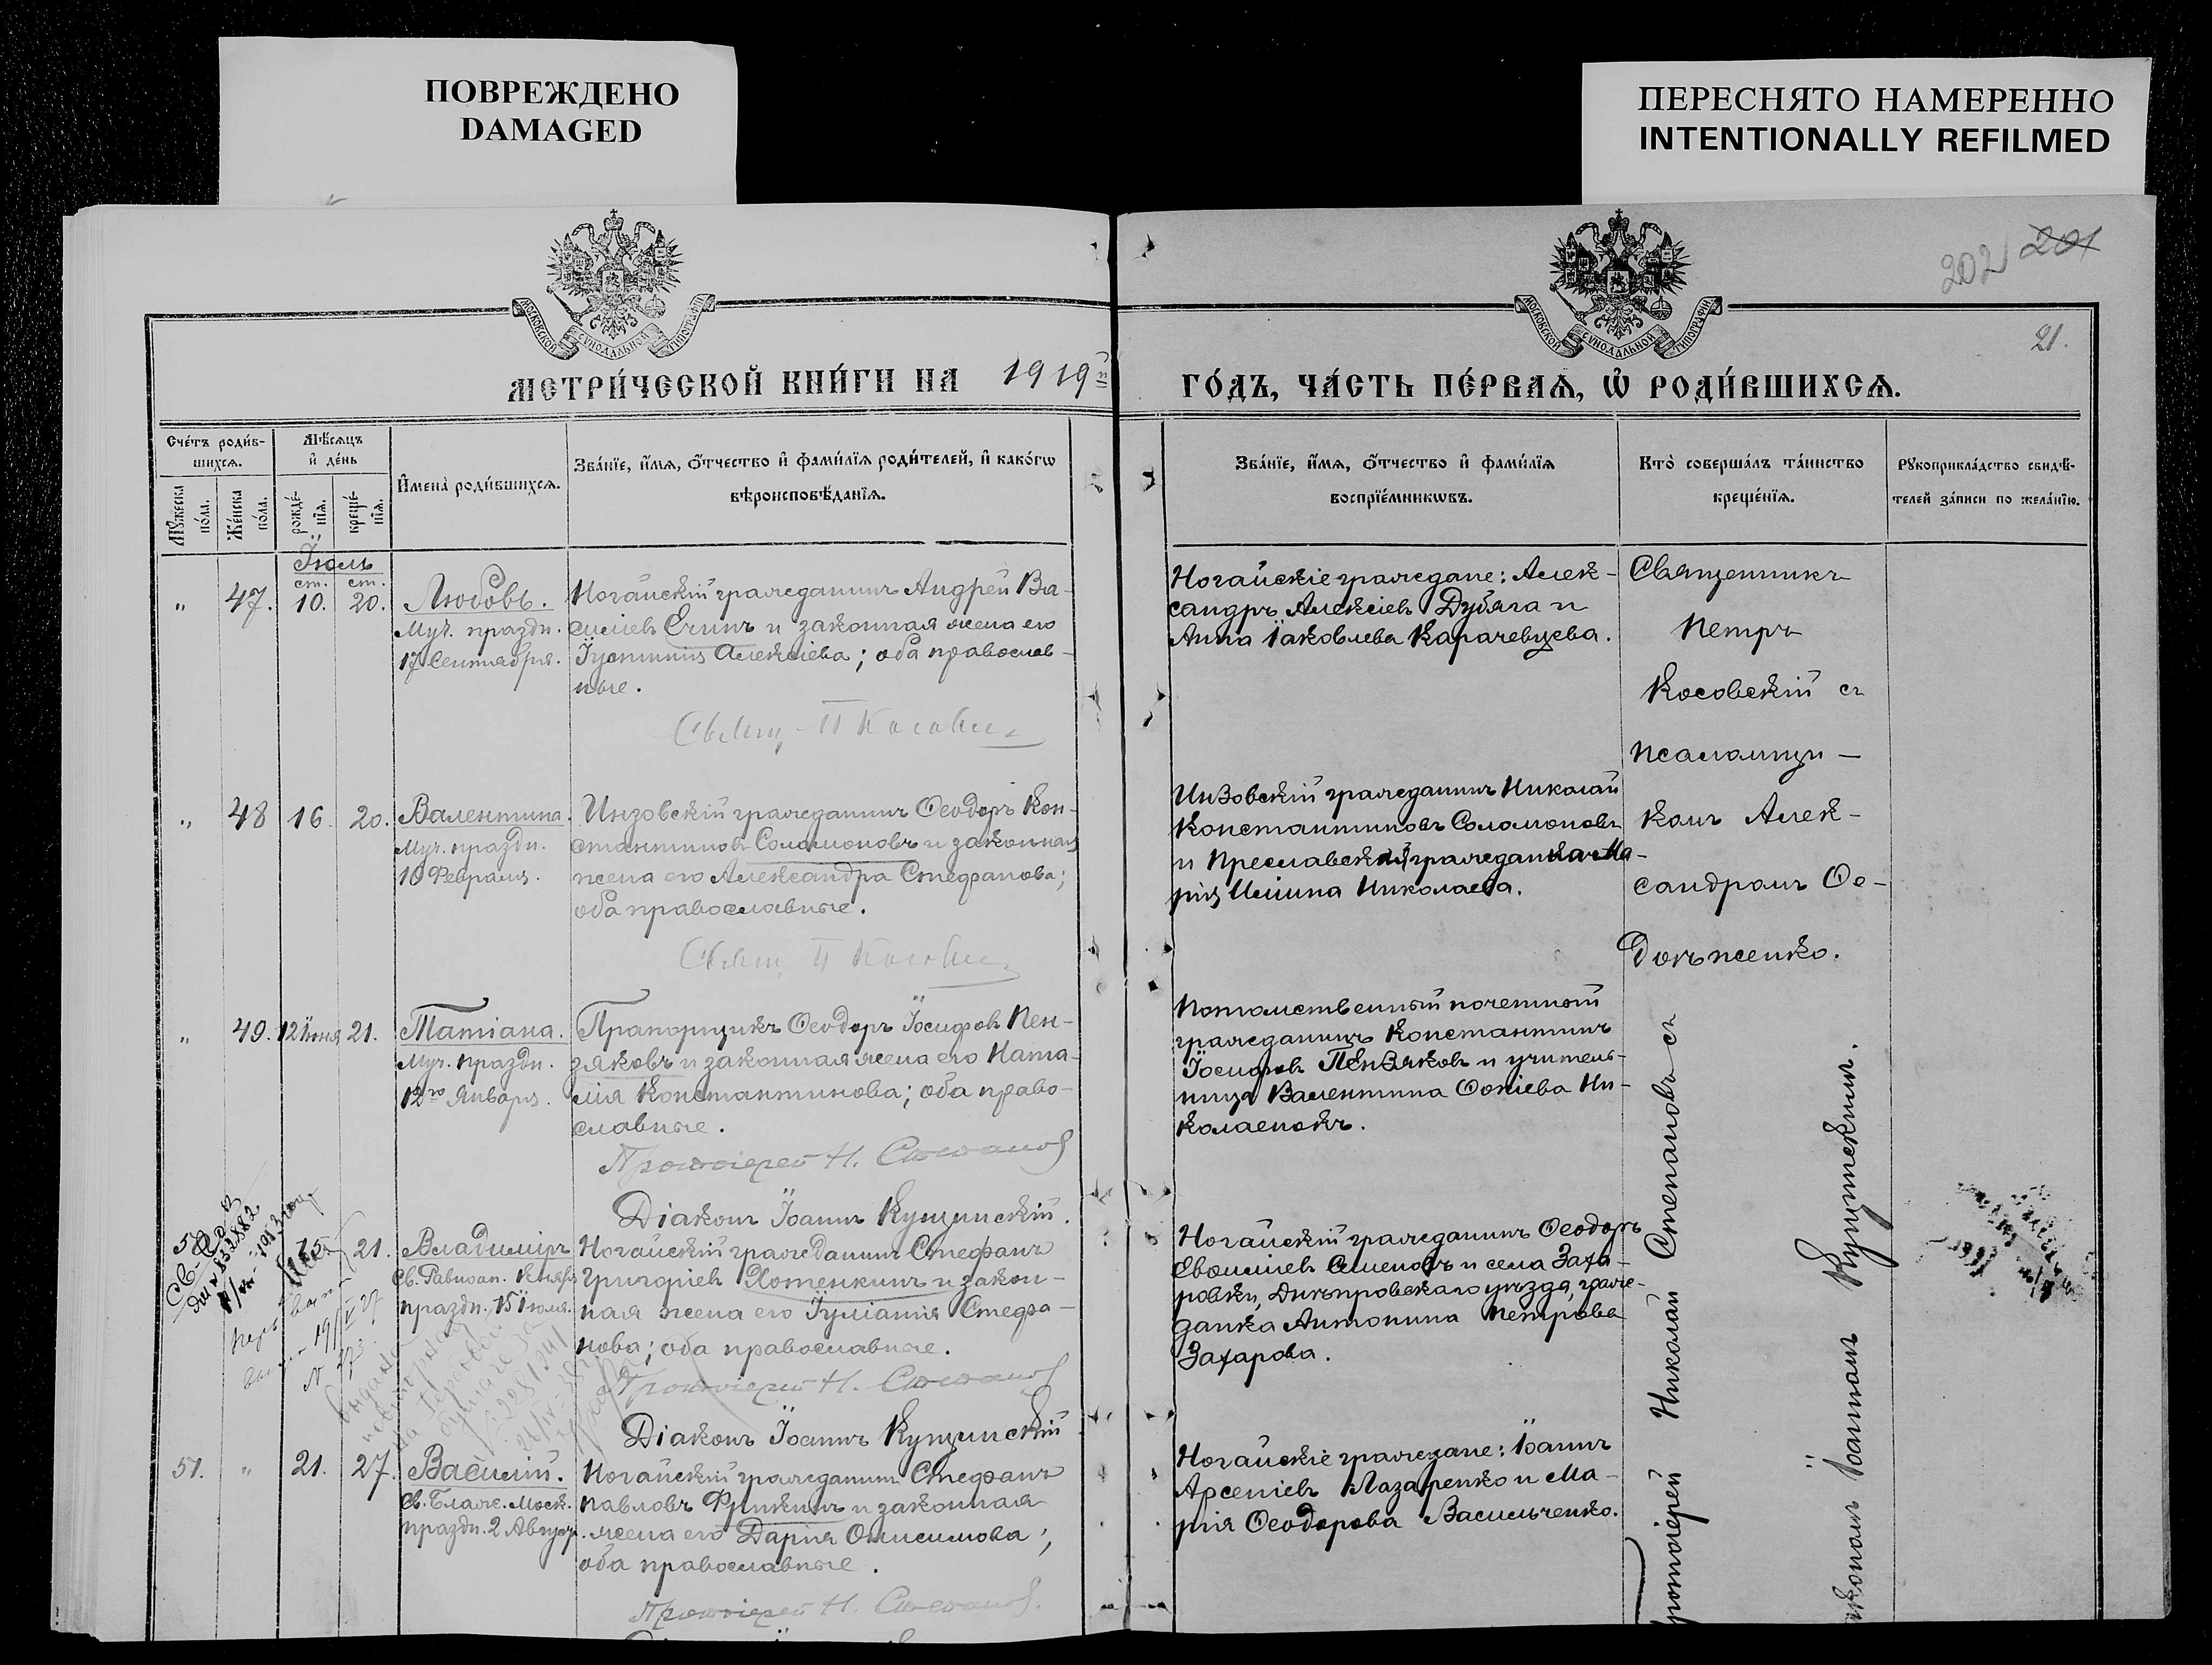 ПОВРЕЖДЕНО
DAMAGED
ПЕРЕСНЯТО НАМЕРЕННО
INTENTIONALLY REFILMED
202 201
21.
МОСКОВСКОЙ СѴНОДАЛЬНОЙ ТИПОГРАФІИ
МОСКОВСКОЙ СѴНОДАЛЬНОЙ ТИПОГРАФІИ
МЕТРИ́ЧЕСКОЙ КНИ́ГИ НА 1919й
ГО́ДЪ, ЧА́СТЬ ПЕ́РВАѦ, Ѡ҆ РОДИ́ВШИХСѦ.
Сче́тъ роди́в-
шихсѧ.
Мѣ́сѧцъ
и҆ де́нь
Мꙋ́жеска
по́ла.
Же́нска
по́ла.
рожде́-
нїѧ.
креще́-
нїѧ.
И҆мена̀ роди́вшихсѧ.
Зва́нїе, и҆́мѧ, ѻ҆́тчество и҆ фами́лїѧ роди́телей, и҆ како́гѡ
вѣроисповѣ́данїѧ.
Зва́нїе, и҆́мѧ, ѻ҆́тчество и҆ фами́лїѧ
воспрїе́мникѡвъ.
Кто̀ соверша́лъ та́инство
креще́нїѧ.
Рꙋкоприкла́дство свидѣ́-
телей за́писи по жела́нїю.
Іюль
ст. ст.
" 47. 10. 20.
Любовь.
Муч. праздн.
17 Сентября.
Ногайскій гражданинъ Андрей Ва-
силіев Ечинъ и законная жена его
Іустинія Алексіева; оба православ-
ные.
Свящ. П Косовск
Ногайскіе граждане: Алек-
сандръ Алексіевъ Дубяга и
Анна Іаковлева Карачевцева.
Священникъ
Петръ
Косовскій съ
псаломщи-
комъ Алек-
сандромъ Ѳе-
" 48 16. 20.
Валентина.
Муч. праздн.
10 Февраля.
Инзовскій гражданинъ Ѳеодоръ Кон-
стантинов Соломоновъ и законная
жена его Александра Стефанова;
оба православные.
Свящ П Косовск
Инзовскій гражданинъ Николай
Константиновъ Соломоновъ
и Преславская гражданка Ма-
рія Николаева.
" 49. 12 Июня 21.
Татіана.
Муч. праздн.
12го Января.
Прапорщикъ Ѳеодоръ Іосифовъ Пен-
зяковъ и законная жена его Ната-
лія Константинова; оба право-
славные.
Протоіерей Н. Стефанов
Діаконъ Іоаннъ Кущинскій.
Потомственный почетный
гражданинъ Константинъ
Іосифовъ Пензяковъ и учитель-
ница Валентина Ни-
колаенокъ.
50. 15 21.
Владиміръ
Св. Равноап. Князя
праздн. 15 Іюля.
Ногайскій гражданинъ Стефанъ
Григоріевъ Хотенкинъ и закон-
ная жена его Іуліанія Стефа-
нова; оба православные.
Протоіерей Н. Стефанов
Діаконъ Іоаннъ Кущинскій
Ногайскій гражданинъ Ѳеодоръ
Семеновъ и села Заха-
ровки, Днѣпровскаго уѣзда, граж-
данка Антонина Петрова
Захарова.
51. " 21. 27.
Василій.
Св. Блаж. Моск.
праздн. 2 Август.
Ногайскій гражданинъ Стефанъ
Павловъ Фишкинъ и законная
жена его Дарія Онисимова;
оба православные.
Протоіерей Н. Стефанов.
Ногайскіе граждане: Іоаннъ
Арсеніевъ Лазаренко и Ма-
рія Ѳеодорова Васильченко.
Протоіерей Николай Стефановъ съ
Іоанномъ Кущинскимъ.